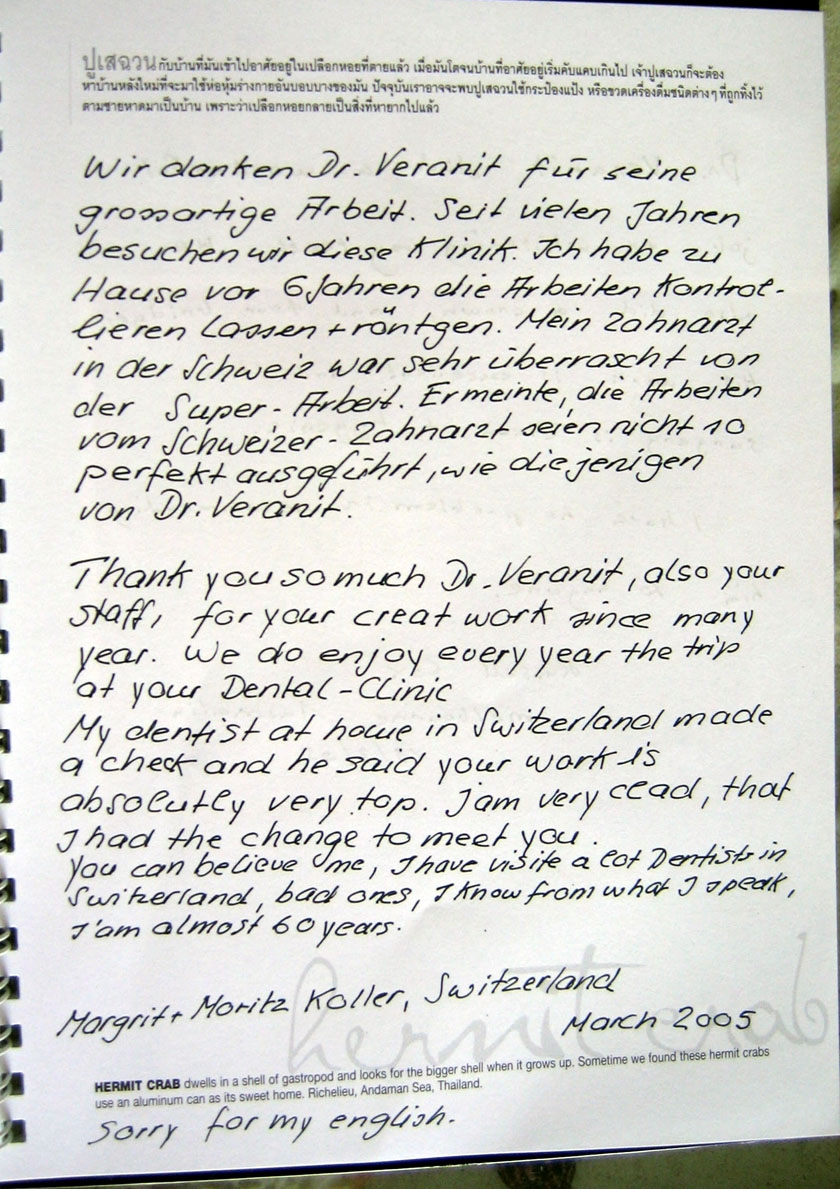 ปูเสฉวน กับบ้านที่มันเข้าไปอาศัยอยู่ในเปลือกหอยที่ตายแล้ว เมื่อมันโตจนบ้านที่อาศัยอยู่เริ่มคับแคบเกินไป เจ้าปูเสฉวนก็จะต้อง
หาบ้านหลังใหม่ที่จะมาใช้ห่อหุ้มร่างกายอันบอบบางของมัน ปัจจุบันเราอาจจะพบปูเสฉวนใช้กระป๋องแป้ง หรือขวดเครื่องดื่มชนิดต่างๆ ที่ถูกทิ้งไว้
ตามชายหาดมาเป็นบ้าน เพราะว่าเปลือกหอยกลายเป็นสิ่งที่หายากไปแล้ว
Wir danken Dr. Veranit für seine
grossartige Arbeit. Seit vielen Jahren
besuchen wir diese Klinik. Ich habe zu
Hause vor 6 Jahren die Arbeiten Kontrol-
lieren Lassen + röntgen. Mein Zahnarzt
in der Schweiz war sehr überrascht von
der Super-Arbeit. Er meinte, die Arbeiten
vom Schweizer-Zahnarzt seien nicht so
perfekt ausgeführt, wie diejenigen
von Dr. Veranit.
Thank you so much Dr. Veranit, also your
staff, for your creat work since many
year. We do enjoy every year the trip
at your Dental-Clinic
My dentist at home in Switzerland made
a check and he said your work is
absolutly very top. I am very clead, that
I had the change to meet you.
You can believe me, I have visite a lot Dentists in
Switzerland, bad ones, I know from what I speak,
I'am almost 60 years.
Margrit + Moritz Koller, Switzerland
March 2005
hermit crab
HERMIT CRAB dwells in a shell of gastropod and looks for the bigger shell when it grows up. Sometime we found these hermit crabs
use an aluminum can as its sweet home. Richelieu, Andaman Sea, Thailand.
Sorry for my english.